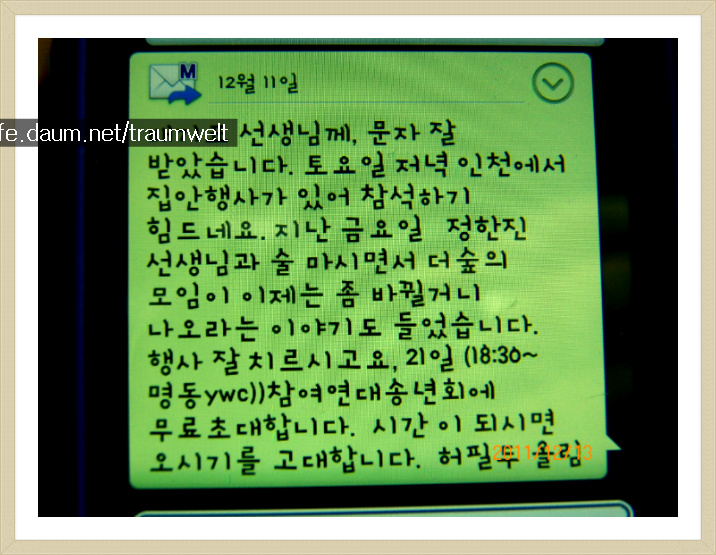 12월 11일
fe.daum.net/traumwelt
선생님께, 문자 잘
받았습니다. 토요일 저녁 인천에서
집안행사가 있어 참석하기
힘드네요. 지난 금요일 정한진
선생님과 술 마시면서 더숲의
모임이 이제는 좀 바뀔거니
나오라는 이야기도 들었습니다.
행사 잘 치르시고요, 21일 (18:30~
명동ywc))참여연대송년회에
무료초대합니다. 시간 이 되시면
오시기를 고대합니다. 허필두 올림
2011/12/13